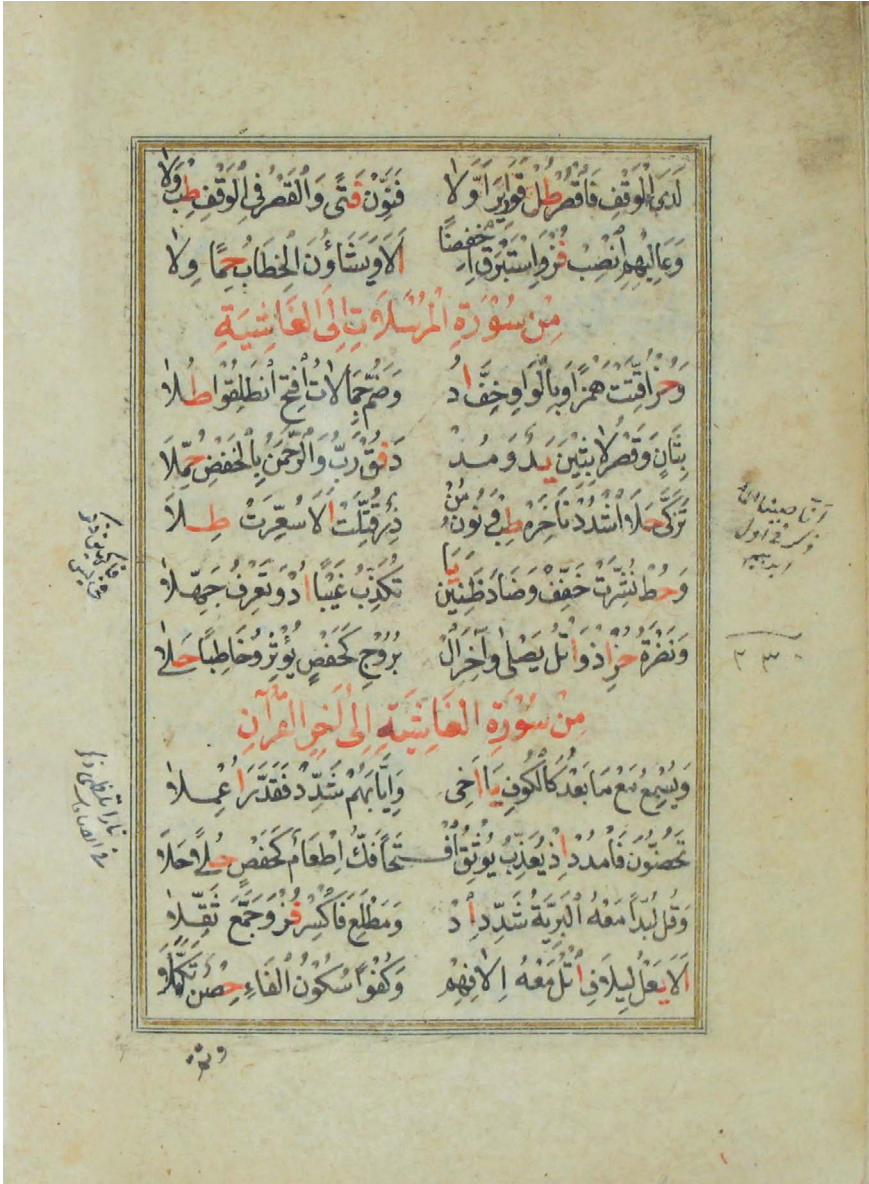 لَدَى الْوَقْفِ فَاقْصُرْ طُلْ قَوَارِيرَ أَوَّلَا فَنَوِّنْ فَتًى وَالْقَصْرُ فِي الْوَقْفِ طِبْ وِلَا
وَعَالِيهِمِ انْصِبْ فُزْ وَاسْتَبْرَقِ اخْفِضًا أَلَا وَيَشَاؤُنَ الْخِطَابُ حِمًا وِلَا
مِنْ سُوْرَةِ الْمُرْسَلَاتِ إِلَى الْغَاشِيَةِ
وَحُزْ أُقِّتَتْ هَمْزًا وَبِالْوَاوِ خِفَّ أُدْ وَضُمَّ جِمَالَاتُ افْتَحِ انْطَلِقُوا طُلَا
بِثَانٍ وَقَصْرُ لَابِثِينَ يَدٌ وَمُدْ دَ فُقْ رَبُّ وَالرَّحْمٰنُ بِالْخَفْضِ حُمِّلَا
تَزَكَّى حَلَا اشْدُدْ نَاخِرَهْ طِبْ وَنُونُ مُنْذِرٌ قُتِّلَتْ أَلَا سُعِّرَتْ طِلَا
وَحُطْ نُشِّرَتْ خَفِّفْ وَضَادَ ظَنِيْنِ يَا تُكَذِّبُ غَيْبًا أُدْ وَتَعْرِفُ جَهِّلَا
وَنَضْرَةُ حُزْ إِذْ وَاتْلُ يَصْلَى وَآخِرَ الْ بُرُوْجِ كَحَفْصٍ يُؤْثِرُو خَاطِبًا حَلَا
مِنْ سُوْرَةِ الْغَاشِيَةِ إِلَى آخِرِ الْقُرْآنِ
وَيُسْمِعُ مَعْ مَا بَعْدُ كَالْكُوْفِ يَا أَخِي وَإِيَّابَهُمْ شَدِّدْ فَقَدَّرَ أُعْمِلَا
تَحَضُّوْنَ فَامْدُدْ إِذْ يُعَذِّبُ يُوْثِقُ افْتَحًا فَكُّ إِطْعَامٌ كَحَفْصٍ حُلًى حَلَا
وَقُلْ لُبَّدًا مَعْهُ الْبَرِيَّةُ شَدِّدْ إِدْ وَمَطْلَعِ فَاكْسِرْ فُزْ وَجَمَّعَ ثَقِّلَا
أَلَا يَعْلُ لِيلَافِ اتْلُ مَعْهُ إِلَافِهِمْ وَكُفْوًا سُكُوْنُ الْفَاءِ حِصْنٌ تَكَمَّلَا
وتم
٢٣٠